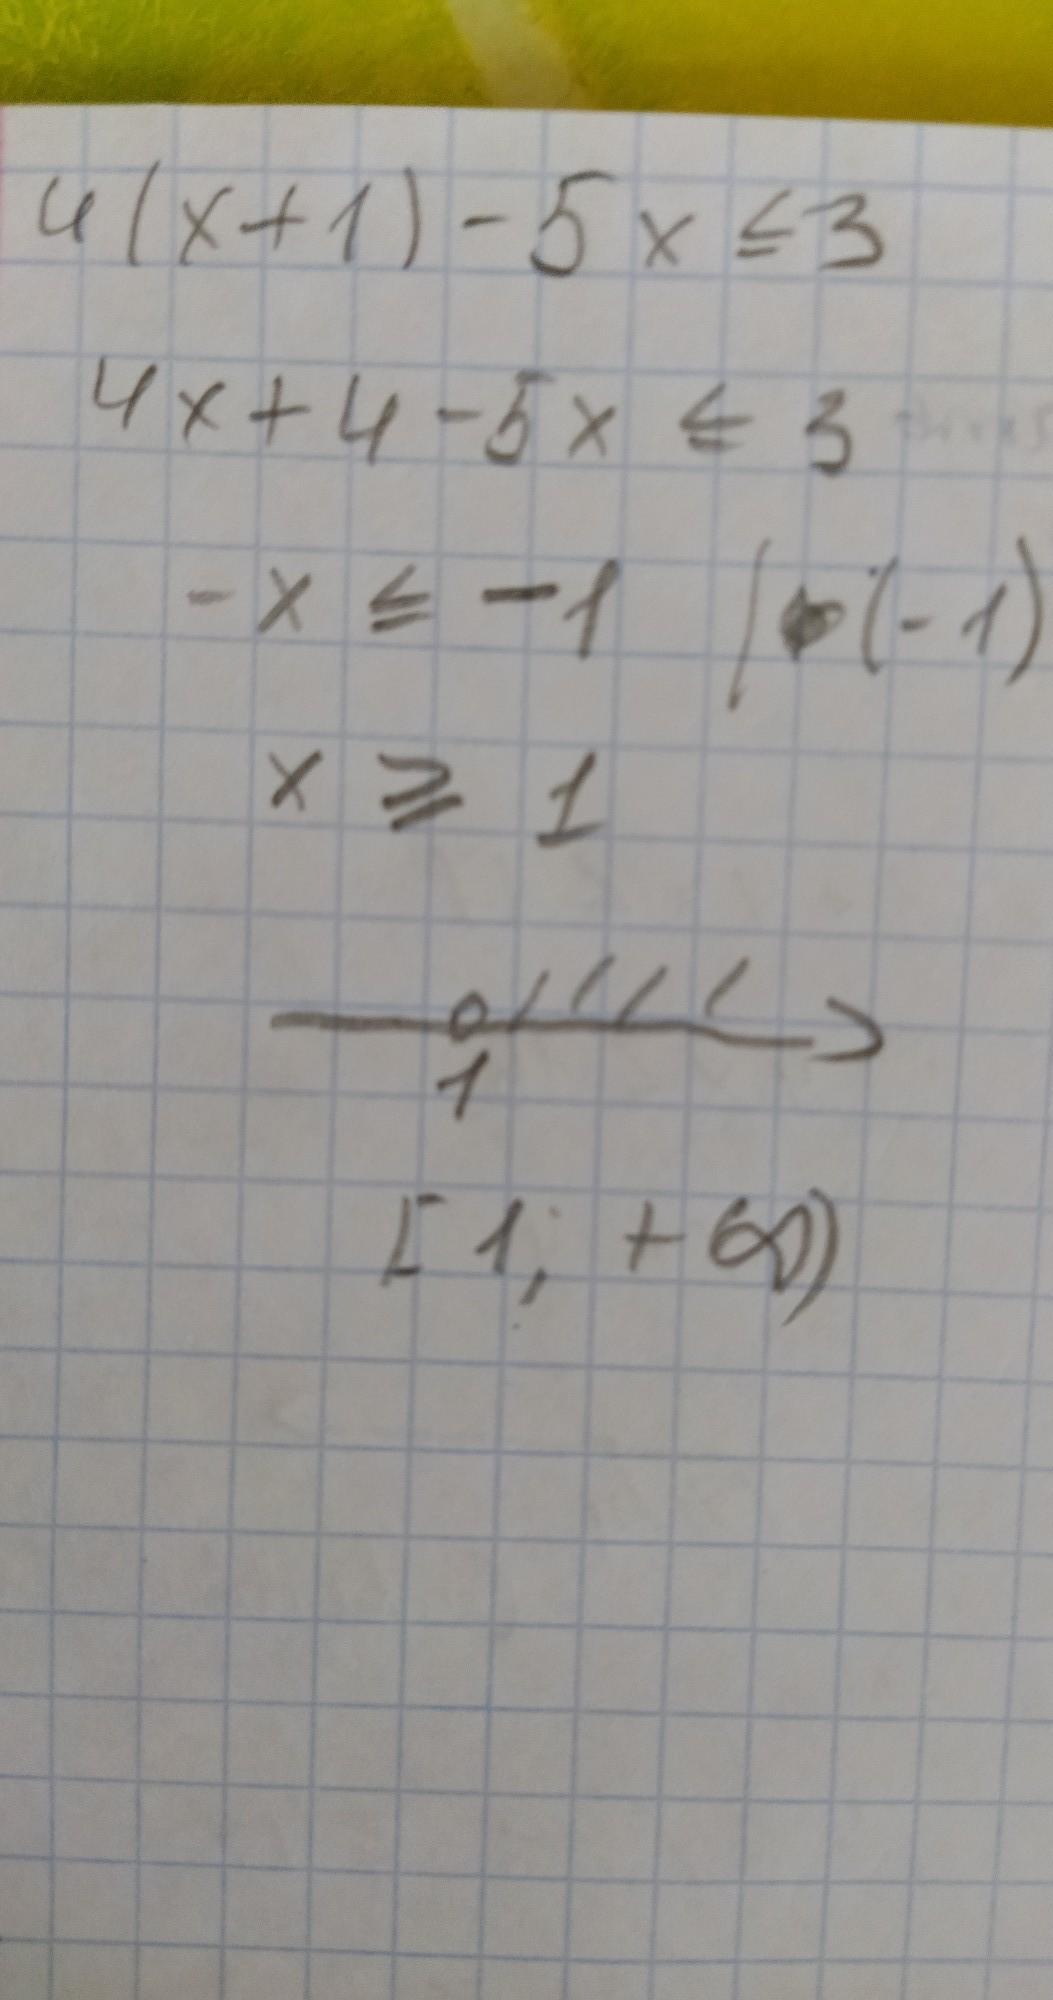 4(x+1)-5x≤3
4x+4-5x≤3
-x≤-1 |·(-1)
x⩾1
1
[1; +∞)